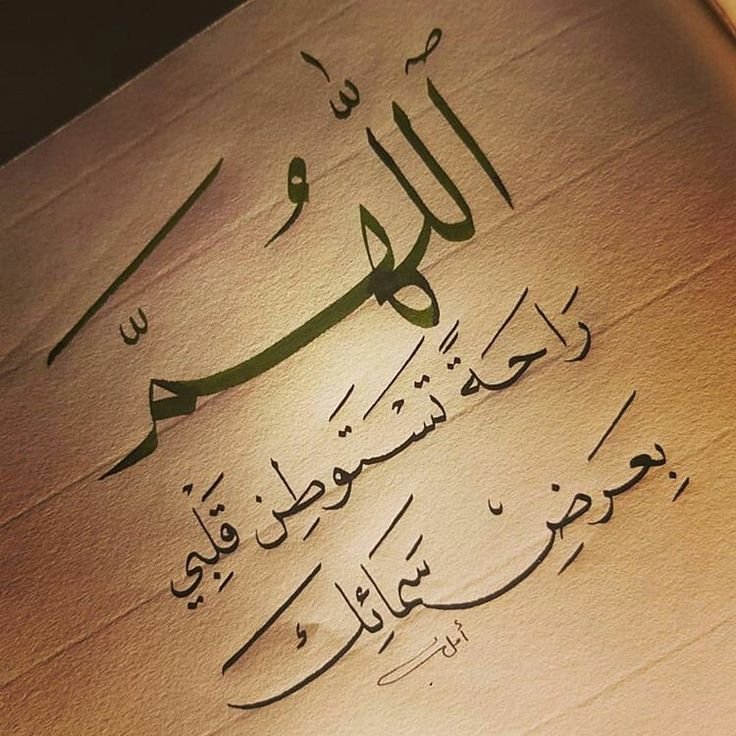 اللَّهُمَّ
رَاحَةً تَسْتَوطِن قَلْبِي
بِعَرضِ سَمَائِكَ
أمل